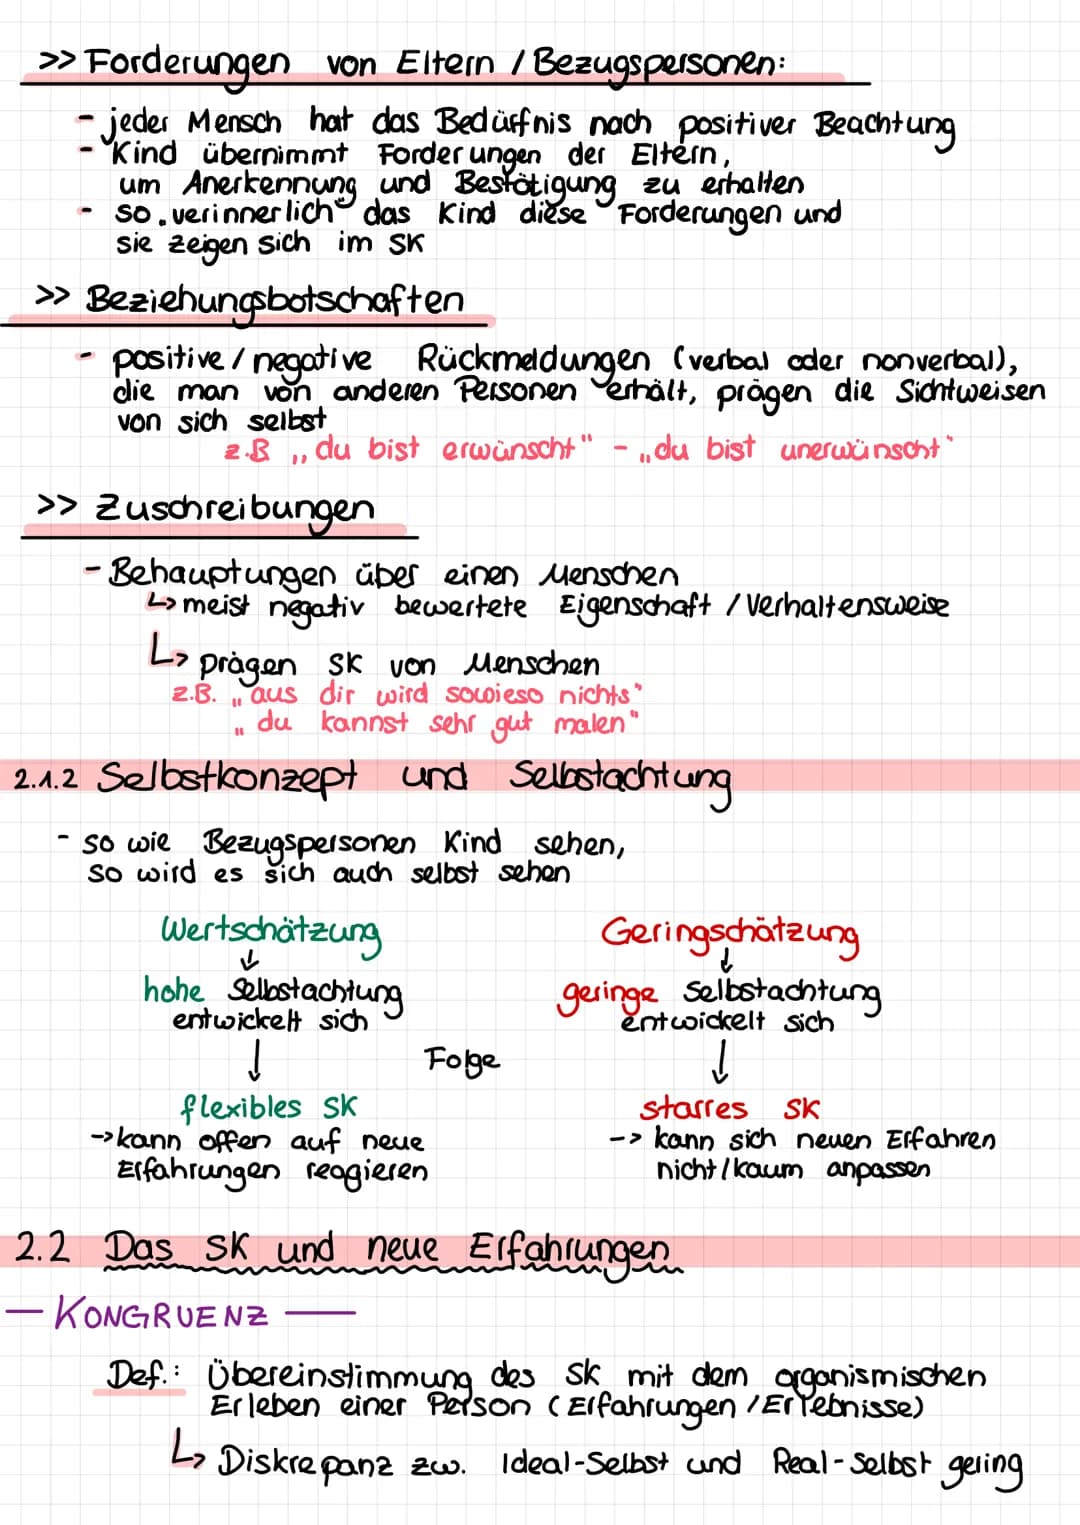 >> Forderungen von Eltern / Bezugspersonen:
- jeder Mensch hat das Bedürfnis nach positiver Beachtung
- Kind übernimmt Forderungen der Eltern,
um Anerkennung und Bestätigung zu erhalten
- so „verinnerlich" das Kind diese Forderungen und
sie zeigen sich im SK
>> Beziehungsbotschaften
- positive / negative Rückmeldungen (verbal oder nonverbal),
die man von anderen Personen erhält, prägen die Sichtweisen
von sich selbst
z.B „du bist erwünscht" - „du bist unerwünscht"
>> Zuschreibungen
- Behauptungen über einen Menschen
↳ meist negativ bewertete Eigenschaft / Verhaltensweise
↳ prägen SK von Menschen
z.B. „aus dir wird sowieso nichts"
„du kannst sehr gut malen"
2.1.2 Selbstkonzept und Selbstachtung
- so wie Bezugspersonen Kind sehen,
so wird es sich auch selbst sehen
Wertschätzung Geringschätzung
↓ ↓
hohe Selbstachtung geringe Selbstachtung
entwickelt sich entwickelt sich
↓ Folge ↓
flexibles SK starres SK
-> kann offen auf neue --> kann sich neuen Erfahren
Erfahrungen reagieren nicht / kaum anpassen
2.2 Das SK und neue Erfahrungen
— KONGRUENZ —
Def.: Übereinstimmung des SK mit dem organismischen
Erleben einer Person (Erfahrungen / Erlebnisse)
↳ Diskrepanz zw. Ideal-Selbst und Real-Selbst gering